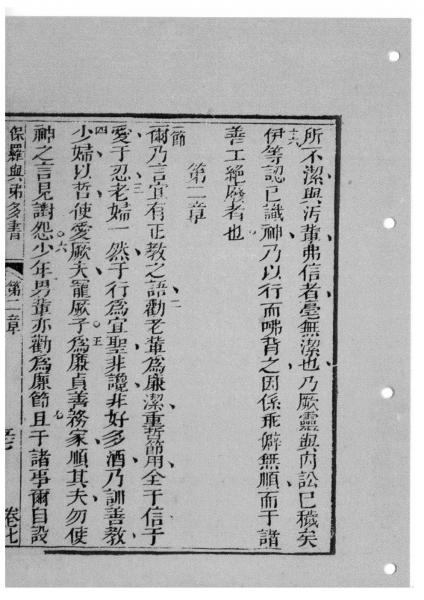 所不潔與污軰弗信者毫無潔也乃厥靈與內訟已穢矣
十六伊等認已識神乃以行而咈背之因係乖僻無順而于諸
善工絶廢者也
第二章
一節爾乃言宜有正教之語二勸老軰為廉潔重哲節用全于信于
愛于忍三老婦一然于行為宜聖非讒非好多酒乃訓善教
四少婦以哲使愛厥夫寵厥子五為廉貞善務家順其夫勿使
神之言見謗怨六少年男軰亦勸為廉節七且于諸事爾自設
保羅與弟多書 第二章 卷七